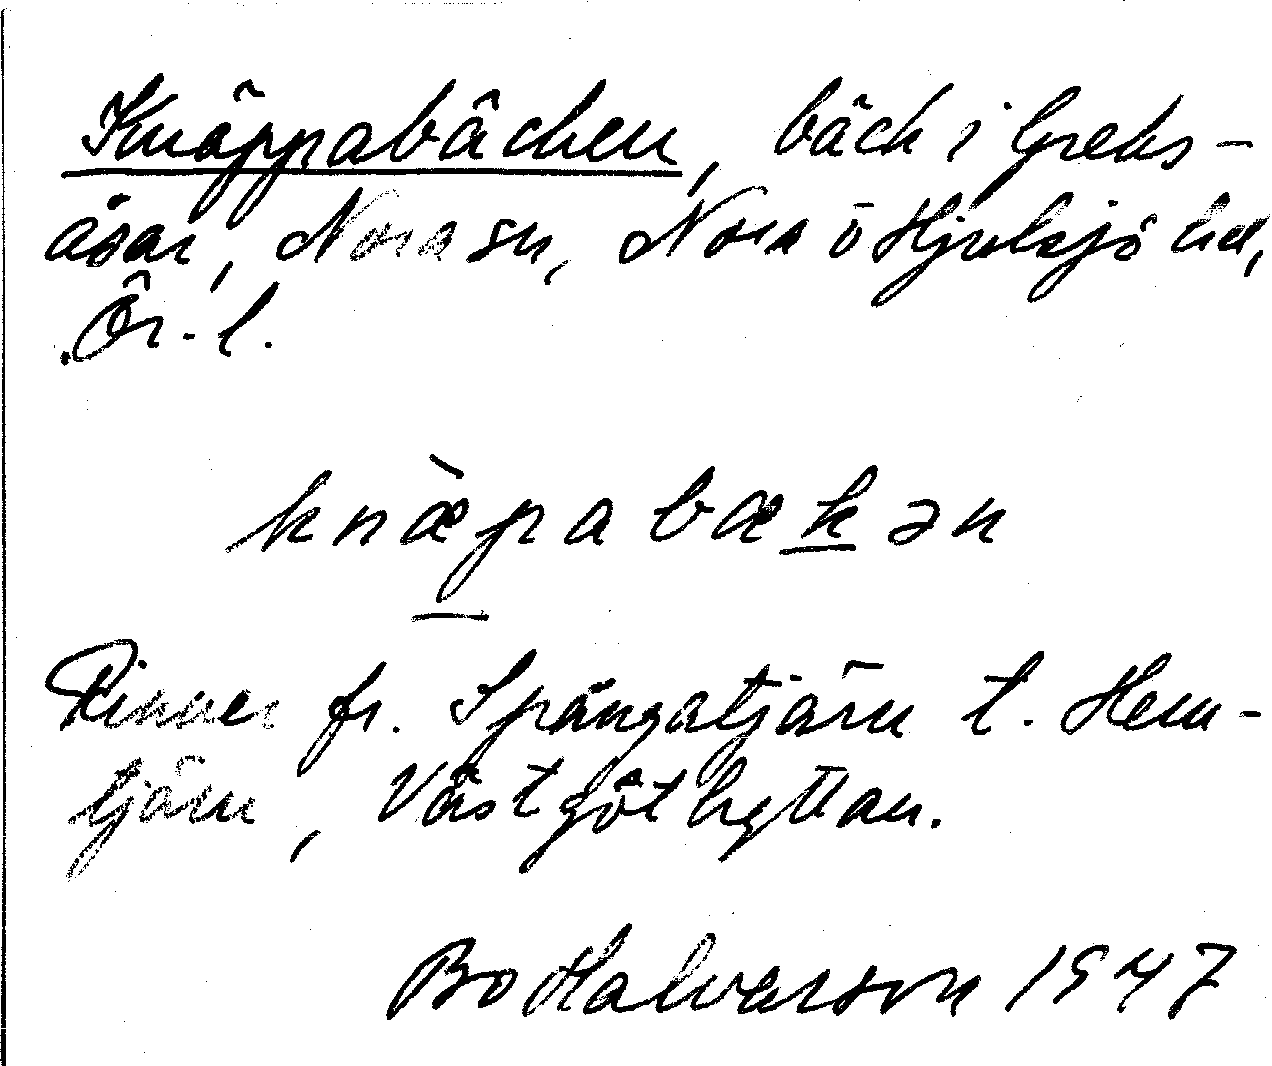 Knäppabäcken, bäck i Greks-
åsar, Nora sn, Nora o Hjulsjö hd,
Ör. l.
knæ̀pabækən
Rinner fr. Spångatjärn t. Hem-
tjärn, Västgöthyttan.
Bo Halvarson 1947